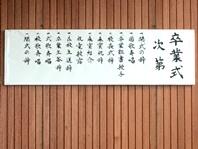 卒業式
次第
・開式の辞
・国歌斉唱
・卒業証書授与
・校長式辞
・来賓祝辞
・来賓紹介
・祝電披露
・在校生送辞
・卒業生答辞
・式歌斉唱
・校歌斉唱
・閉式の辞